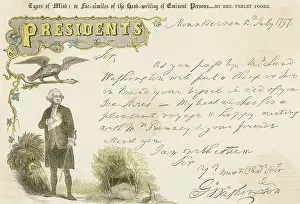 Types of Mind: or Fac-similes of the Hand-writing of Eminent Persons.—BY BEN: PERLEY POORE.
PRESIDENTS
Mount Vernon 5th July 1797
Sir,
As you pass by Mr.
Washington will put a Sheep or two
on Board your vessel in aid of your
Sea Stores — My best wishes for a
pleasant voyage & happy meeting
with Mrs & your friends
attend you
I am with esteem
Sir
Yr most Obedt Servt
Go Washington